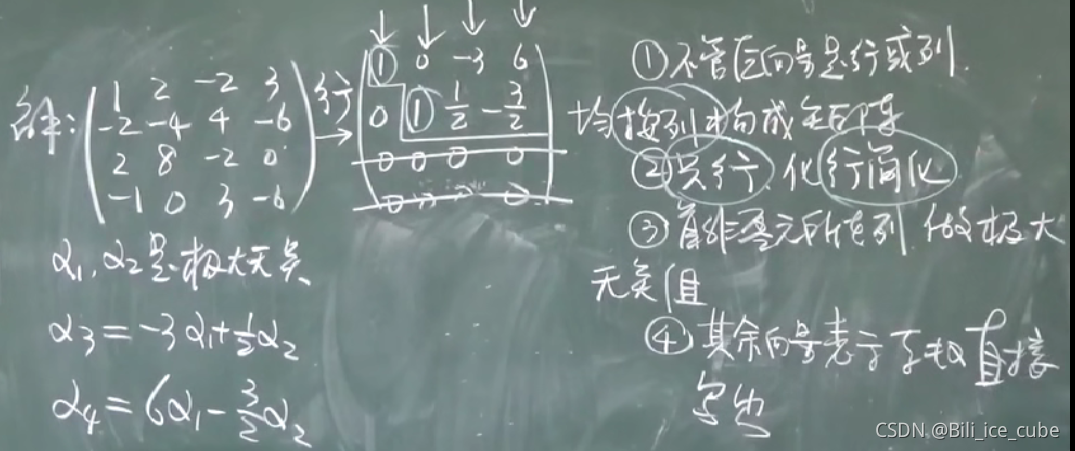 解:
1 2 -2 3
-2 -4 4 -6
2 8 -2 0
-1 0 3 -6
行
1 0 -3 6
0 1 1/2 -3/2
0 0 0 0
0 0 0 0
α₁,α₂是极大无关
α₃=-3α₁+1/2α₂
α₄=6α₁-3/2α₂
①不管原向量是行或列.
均按列构成矩阵
②只行.化行简化
③首非零元所在列.做极大
无关组
④其余向量表示系数直接
写出
CSDN @Bili_ice_cube